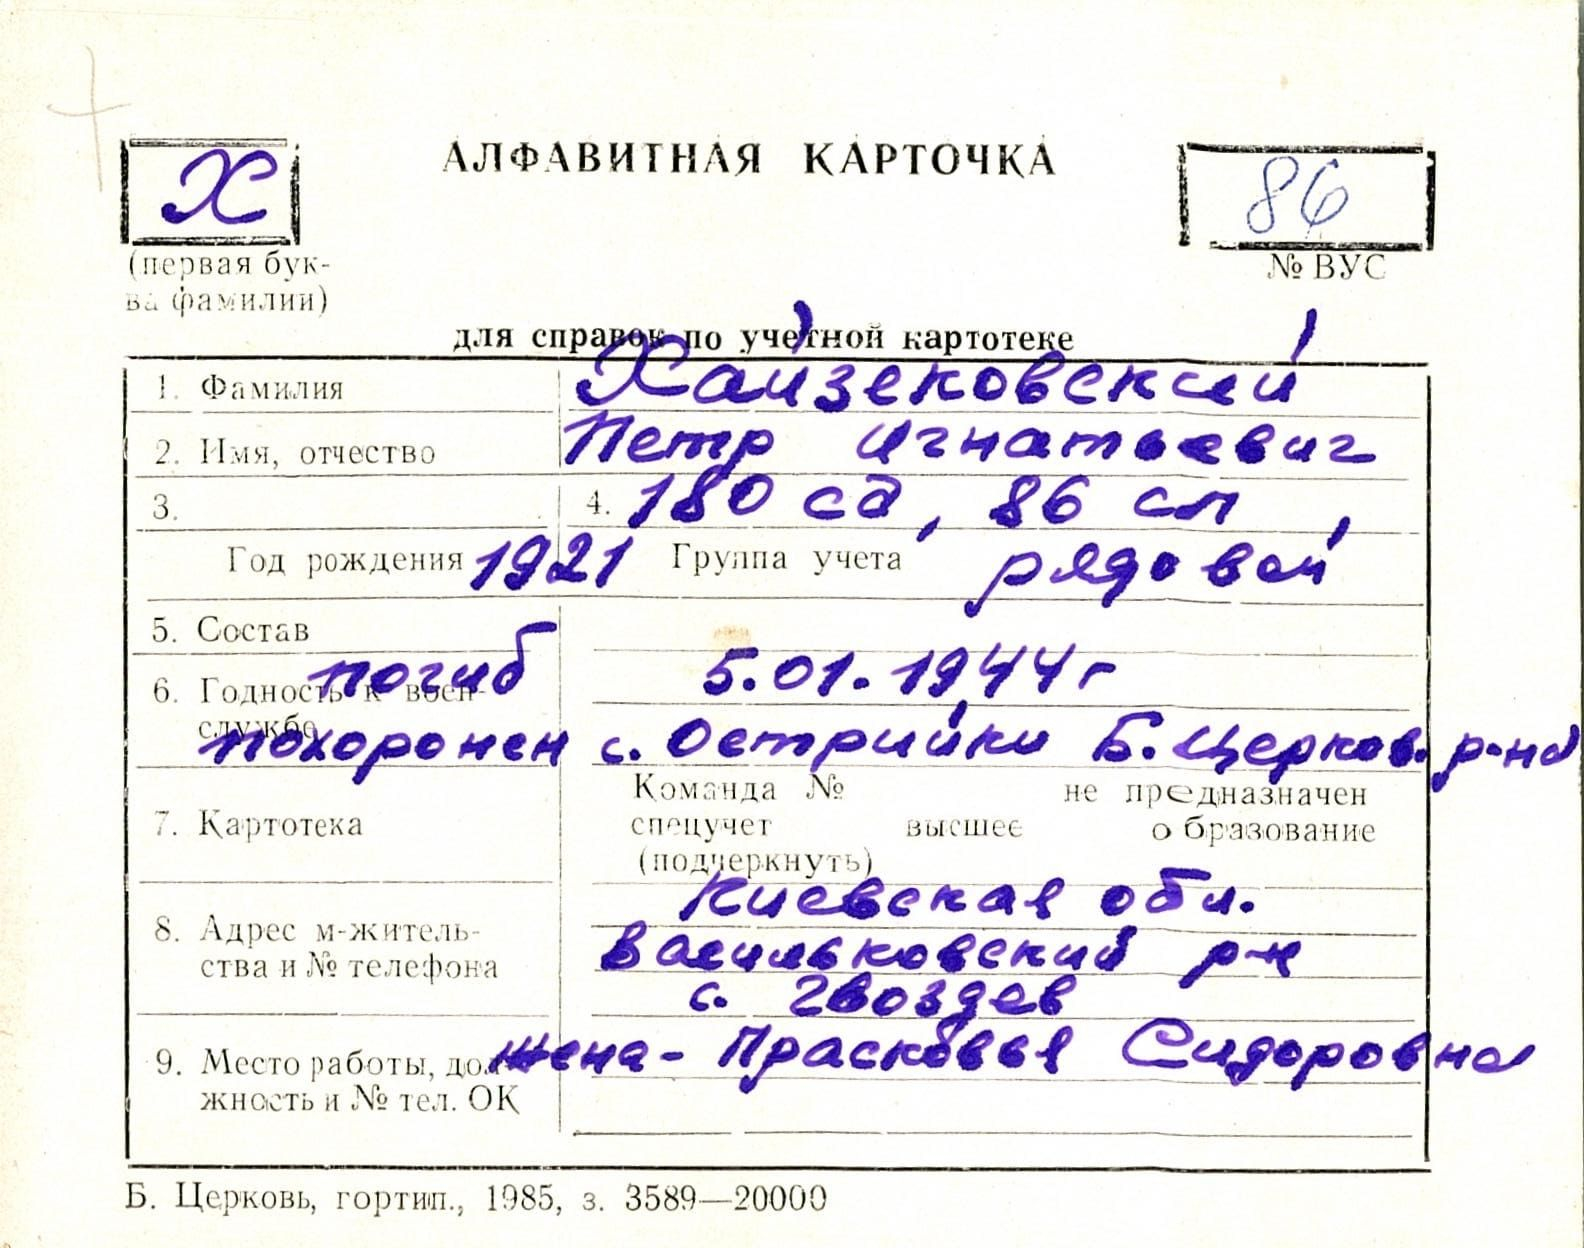 Х
АЛФАВИТНАЯ КАРТОЧКА
86
(первая бук-
ва фамилии)
№ ВУС
для справок по учётной картотеке
1. Фамилия Хайзековский
2. Имя, отчество Петр Игнатьевич
3. 4. 180 сд, 86 сп,
Год рождения 1921 Группа учета рядовой
5. Состав
погиб 5.01.1944г
6. Годность к воен-
службе
похоронен с. Острийки Б. Церков. р-на
Команда № не предназначен
7. Картотека спецучет высшее образование
(подчеркнуть)
Киевская обл.
8. Адрес м-житель-
ства и № телефона
Васильковский р-н
с. Гвоздев
9. Место работы, дол-
жность и № тел. ОК
жена - Прасковья Сидоровна
Б. Церковь, гортип., 1985, з. 3589—20000